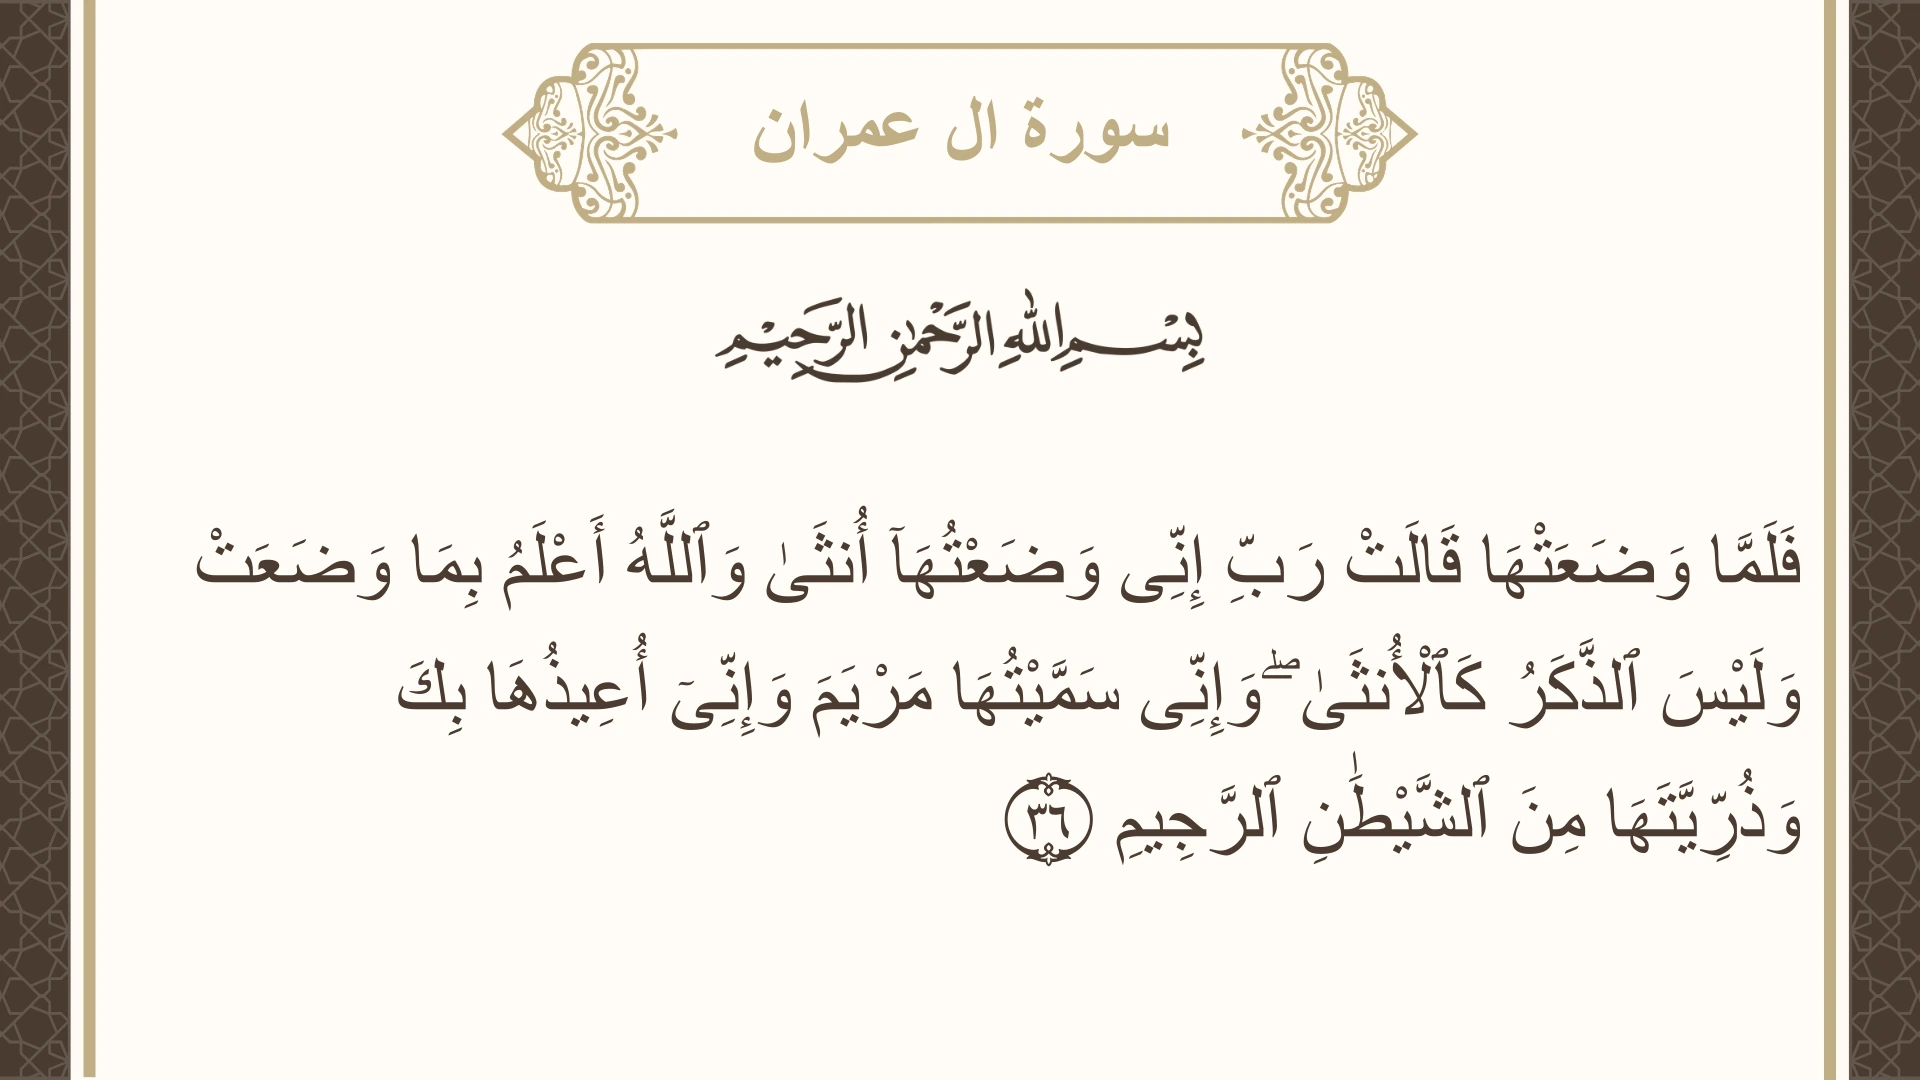 سورة ال عمران
بِسْمِ اللهِ الرَّحْمٰنِ الرَّحِيْمِ
فَلَمَّا وَضَعَتْهَا قَالَتْ رَبِّ إِنِّى وَضَعْتُهَآ أُنثَىٰ وَٱللَّهُ أَعْلَمُ بِمَا وَضَعَتْ
وَلَيْسَ ٱلذَّكَرُ كَٱلْأُنثَىٰ ۖ وَإِنِّى سَمَّيْتُهَا مَرْيَمَ وَإِنِّىٓ أُعِيذُهَا بِكَ
وَذُرِّيَّتَهَا مِنَ ٱلشَّيْطَٰنِ ٱلرَّجِيمِ ٣٦